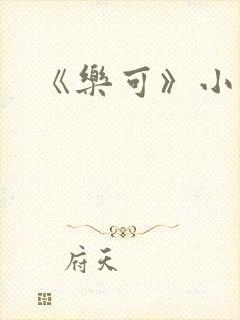 《樂可》小
府天